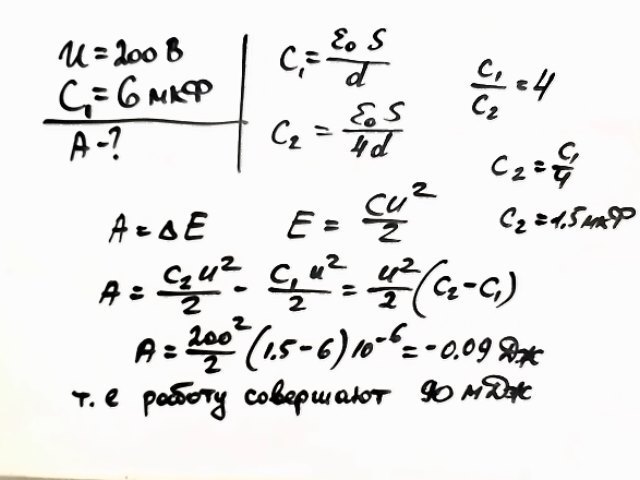 U = 200 В
C₁ = 6 мкФ
A - ?
C₁ = ε₀ S / d
C₂ = ε₀ S / 4d
C₁ / C₂ = 4
C₂ = C₁ / 4
C₂ = 1.5 мкФ
A = ΔE
E = CU² / 2
A = C₂U² / 2 - C₁U² / 2 = U² / 2 (C₂ - C₁)
A = 200² / 2 (1.5 - 6) 10⁻⁶ = -0.09 Дж
т. е работу совершают 90 мДж